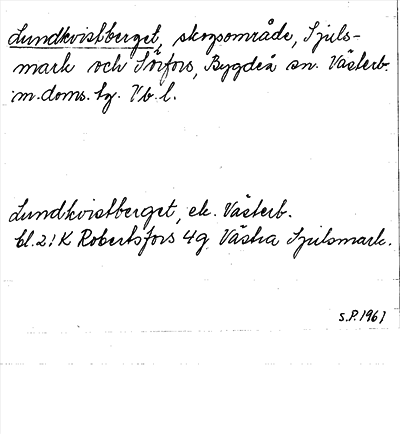 Lundkvistberget, skogsområde, Sjuls-
mark och Sörfors, Bygdeå sn. Västerb.
m. doms. tg. Vb. l.
Lundkvistberget, ek. Västerb.
bl. 21 K Robertsfors 4 g Västra Sjulsmark.
S.P. 1961